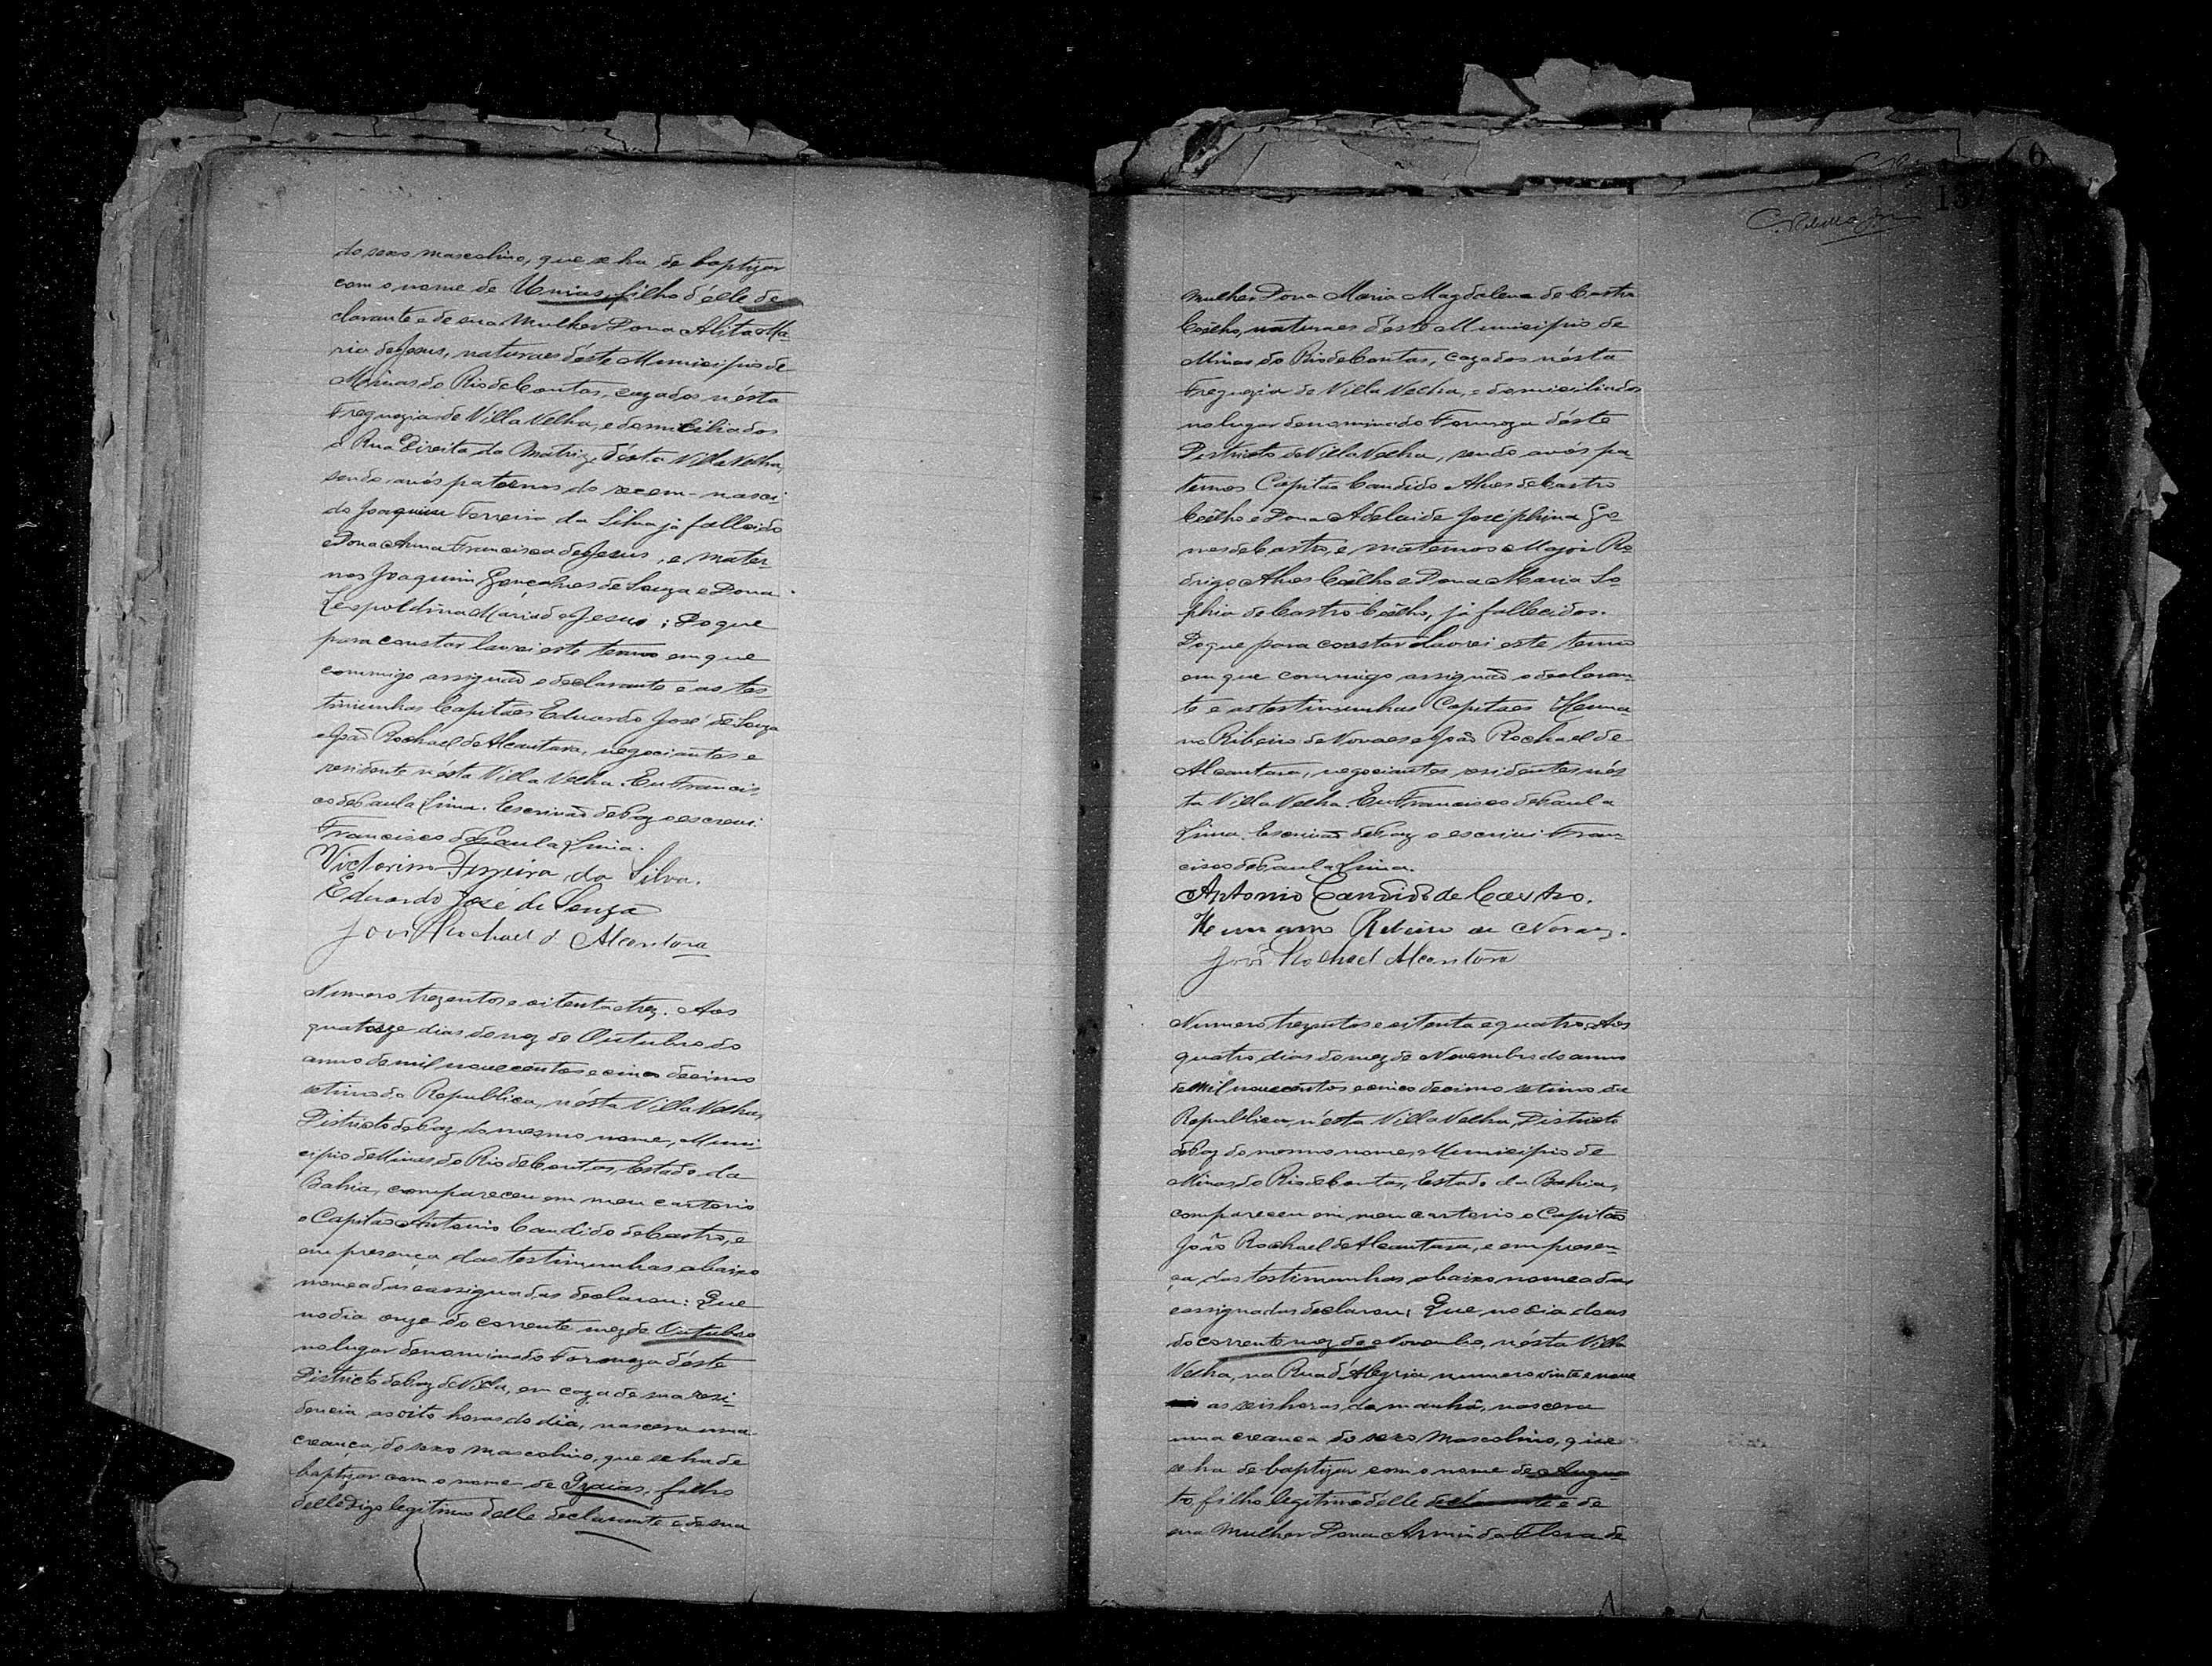 do sexo masculino, que se ha de baptizar
com o nome de Urias, filho d'elle de
clarante e de sua Mulher Dona Alita Ma-
ria de Jesus, naturaes déste Municipio de
Minas do Rio de Contas, cazados nésta
Freguezia de Villa Velha, e domiciliados
á Rua Direita da Matriz, désta Villa Velha,
sendo avós paternos do recem-nasci
do Joaquim Ferreira da Silva já fallecido
e Dona Anna Francisca de Jesus, e mater-
nos Joaquim Gonçalves de Souza e Dona
Leopoldina Maria de Jesus; Do que
para constar lavrei este termo em que
commigo assignão o declarante e as tes-
timunhas Capitães Eduardo José de Souza
e João Rochael de Alcantara, negociantes e
residente nésta Villa Velha. Eu Francis-
co de Paula Lima. Escrivão de Paz o escrevi.
Francisco de Paula Lima.
Victorino Ferreira da Silva.
Eduardo José de Souza
João Rochael d Alcantara
Numero trezentos e oitenta e trez. Aos
quatorze dias do mez de Outubro do
anno de mil novecentos e cinco decimo
setimo da Republica, nésta Villa Velha,
Districto de Paz do mesmo nome, Muni-
cipio de Minas do Rio de Contas, Estado da
Bahia, compareceu em meu cartorio
o Capitão Antonio Candido de Castro, e
em presença das testimunhas abaixo
nomeadas e assignadas declarou: Que
no dia onze do corrente mez de Outubro
no lugar denominado Formoza déste
Districto de Paz de Villa, em caza de sua resi-
dencia, as oito horas do dia, nascera uma
creança, do sexo masculino, que se ha de
baptizar com o nome de Izaias, filho
delle digo legitimo delle declarante e de sua
C. Rebello Jor
137
6
mulher Dona Maria Magdalena de Castro
Coêlho, naturaes déste Municipio de
Minas do Rio de Contas, cazados nésta
Freguezia de Villa Velha, e domiciliados
no lugar denominado Formoza déste
Districto de Villa Velha, sendo avós pa-
ternos Capitão Candido Alves de Castro
Coêlho e Dona Adelaide Josephina Go-
mes de Castro, e maternos Major Ro
drigo Alves Coêlho e Dona Maria So-
phia de Castro Coêlho, já fallecidos.
Do que para constar lavrei este termo
em que commigo assignão o declaran-
te e as testimunhas Capitães Herma-
no Ribeiro de Novaes e João Rochael de
Alcantara, negociantes, residentes nés
ta Villa Velha. Eu Francisco de Paula
Lima. Escrivão de Paz o escrivi Fran-
cisco de Paula Lima.
Antonio Candido de Castro.
Hermano Ribeiro de Novaes.
João Rochael Alcantara
Numero trezentos e oitenta e quatro. Aos
quatro dias do mez de Novembro do anno
de mil novecentos e cinco decimo setimo da
Republica, nésta Villa Velha, Districto
de Paz do mesmo nome, Municipio de
Minas do Rio de Contas, Estado da Bahia,
compareceu em meu cartorio o Capitão
João Rochael de Alcantara, e em presen-
ça das testimunhas abaixo nomeadas
e assignadas declarou: Que no dia dous
do corrente mez de Novembro, nésta Villa
Velha, na Rua d'Alegria numero vinte e nove
as seis horas da manhã, nascera
uma creança do sexo masculino, que
se ha de baptizar com o nome de Augus-
to, filho legitimo délle declarante e de
sua Mulher Dona Arminda Flora de